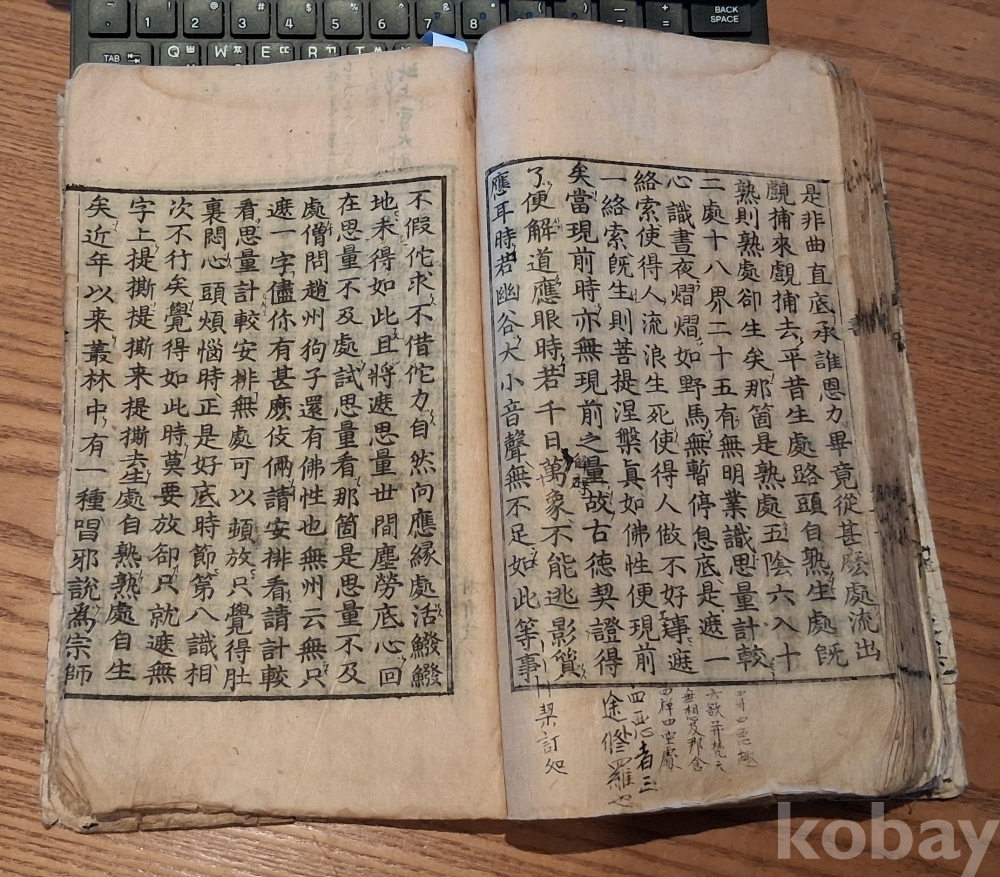 是非曲直底承誰恩力畢竟從甚麽處流出
覷捕來覷捕去平昔生處路頭自熟生處旣
熟則熟處卻生矣那箇是熟處五陰六入十
二處十八界二十五有無明業識思量計較
心識晝夜熠熠如野馬無暫停息底是遮一
絡索使得人流浪生死使得人做不好事遮
一絡索旣生則菩提涅槃眞如佛性便現前
矣當現前時亦無現前之量故古德契證得
了便解道應眼時若千日萬象不能逃影質
應耳時若幽谷大小音聲無不足如此等事
不假佗求不借佗力自然向應緣處活鱍鱍
地未得如此且將遮思量世間塵勞底心回
在思量不及處試思量看那箇是思量不及
處僧問趙州狗子還有佛性也無州云無只
遮一字儘你有甚麽伎倆請安排看請計較
看思量計較安排無處可以頓放只覺得肚
裏悶心頭煩惱時正是好底時節第八識相
次不行矣覺得如此時莫要放卻只就遮無
字上提撕提撕来提撕去生處自熟熟處自生
矣近年以来叢林中有一種唱邪說爲宗師
契訂処
四惡者三
途修羅也
kobay
TAB
Q W E R T Y
BACK SPACE